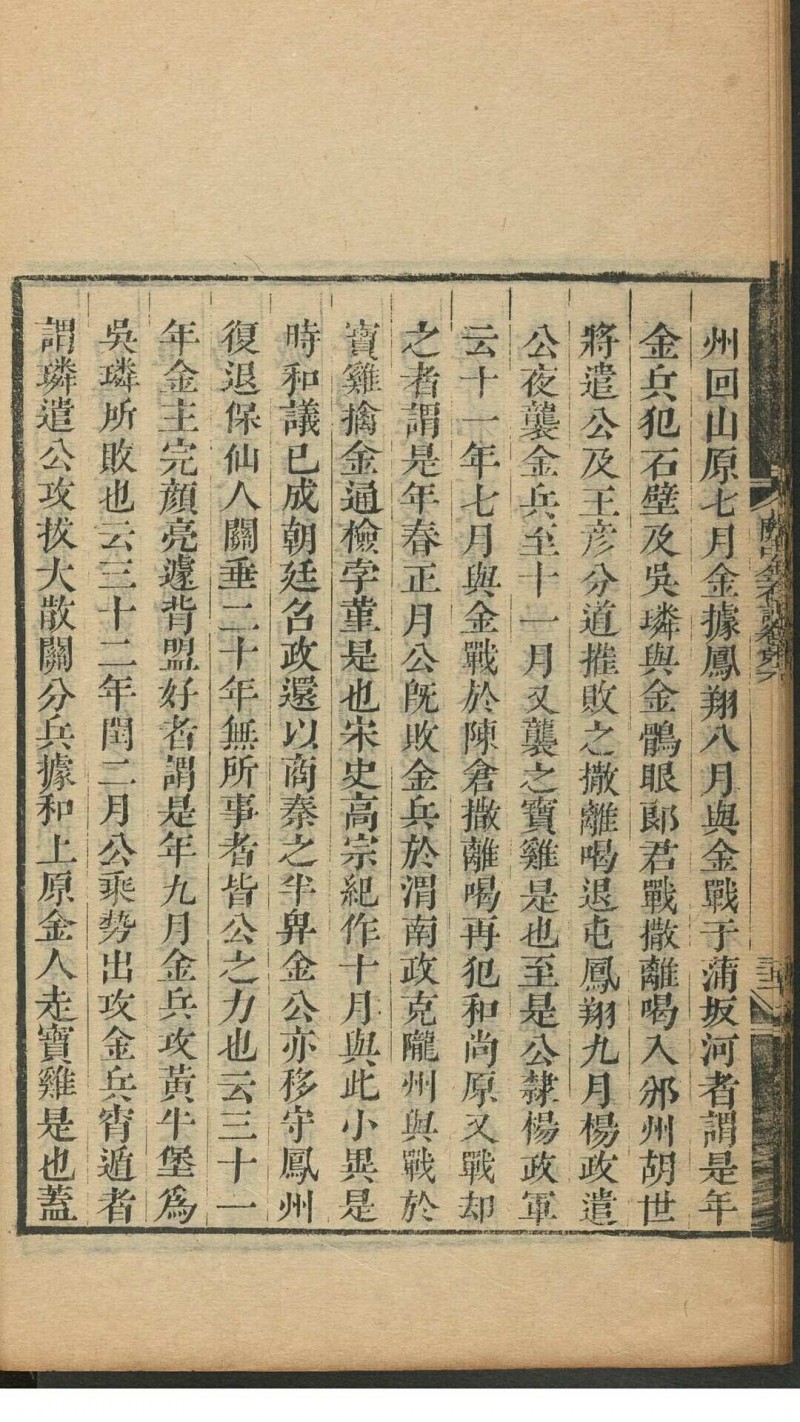 州回山原七月金據鳳翔八月與金戰于蒲坂河者謂是年
金兵犯石壁及吳璘與金鶻眼郎君戰撒離喝入邠州胡世
將遣公及王彥分道摧敗之撒離喝退屯鳳翔九月楊政遣
公夜襲金兵至十一月又襲之寶雞是也至是公隸楊政軍
云十一年七月與金戰於陳倉撒離喝再犯和尚原又戰却
之者謂是年春正月公旣敗金兵於渭南政克隴州與戰於
寶雞擒金通檢孛堇是也宋史高宗紀作十月與此小異是
時和議已成朝廷名政還以商秦之半畀金公亦移守鳳州
復退保仙人關垂二十年無所事者皆公之力也云三十一
年金主完顏亮遽背盟好者謂是年九月金兵攻黃牛堡爲
吳璘所敗也云三十二年閏二月公乘勢出攻金兵宵遁者
謂璘遣公攻拔大散關分兵據和上原金人走寶雞是也蓋